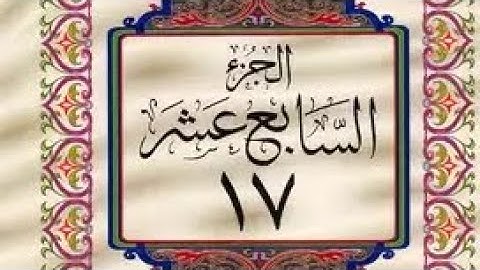 الجزء
السَّابع عشر
١٧